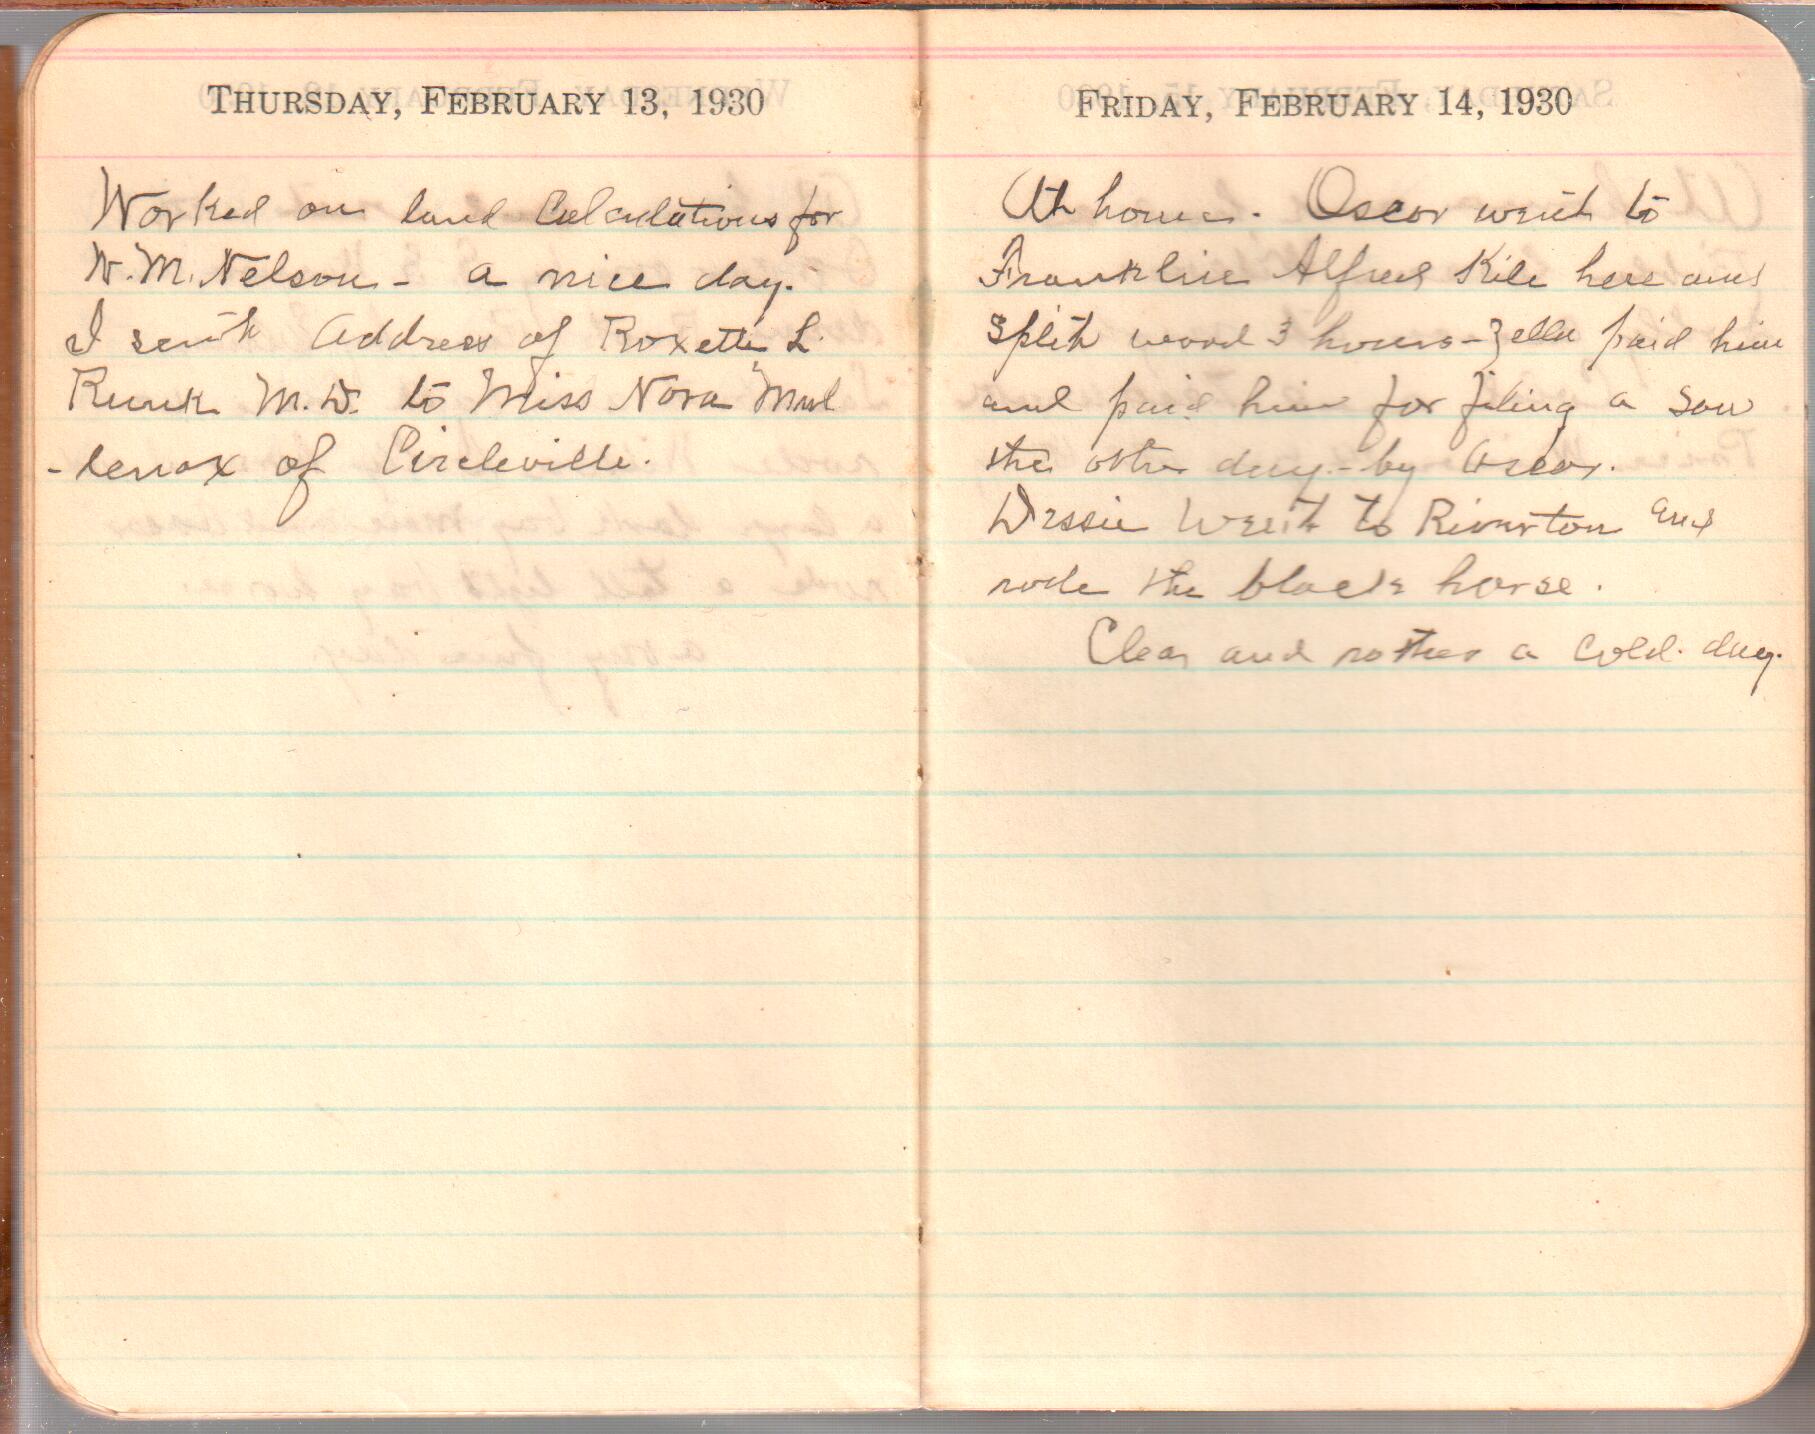 THURSDAY, FEBRUARY 13, 1930
Worked on land Calculations for
W. M. Nelson - a nice day.
I sent Address of Roxette L.
Runk M.D. to Miss Nora Mul
-lenax of Circleville.
FRIDAY, FEBRUARY 14, 1930
At home. Oscar went to
Franklin Alfred Kile here and
split wood 3 hours - Zella paid him
and paid him for filing a saw
the other day - by Oscar.
Dessie went to Riverton and
rode the black horse.
Clear and rather a cold day.